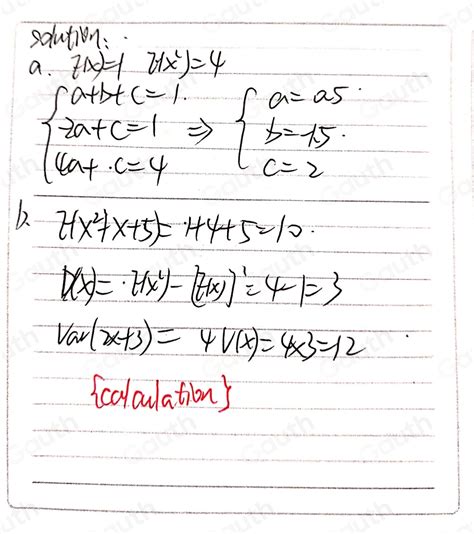 solution:
a. E(x)=1 E(x²)=4
{ a+b+c=1. { a=0.5
{ 2a+c=1 ⇒ { b=-1.5.
{ 4a+.c=4 { c=2
b. E(x²+x+5)= 1+4+5=10.
D(x)= E(x²)-[E(x)]²=4-1=3
Var(2x+3)= 4V(x)=4x3=12
{calculation}